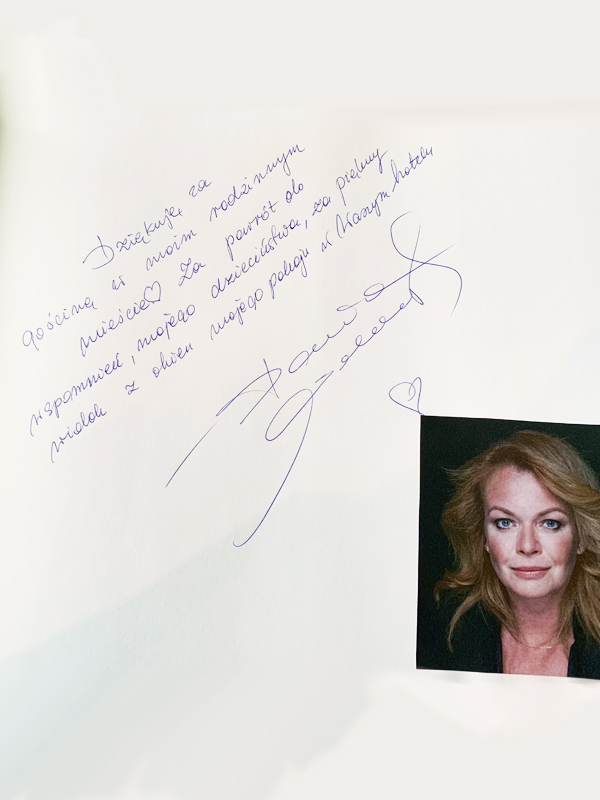 Dziękuję za
gościnę w moim rodzinnym
mieście♡ Za powrót do
wspomnień, mojego dzieciństwa, za piękny
widok z okien mojego pokoju w Waszym hotelu